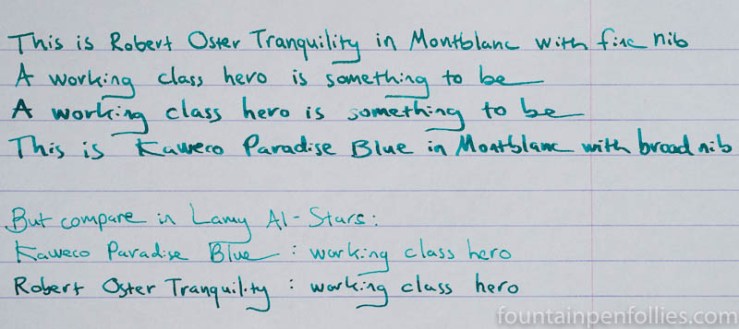 This is Robert Oster Tranquility in Montblanc with fine nib
A working class hero is something to be
A working class hero is something to be
This is Kaweco Paradise Blue in Montblanc with broad nib
But compare in Lamy Al-Stars:
Kaweco Paradise Blue : working class hero
Robert Oster Tranquility : working class hero
fountainpenfollies.com